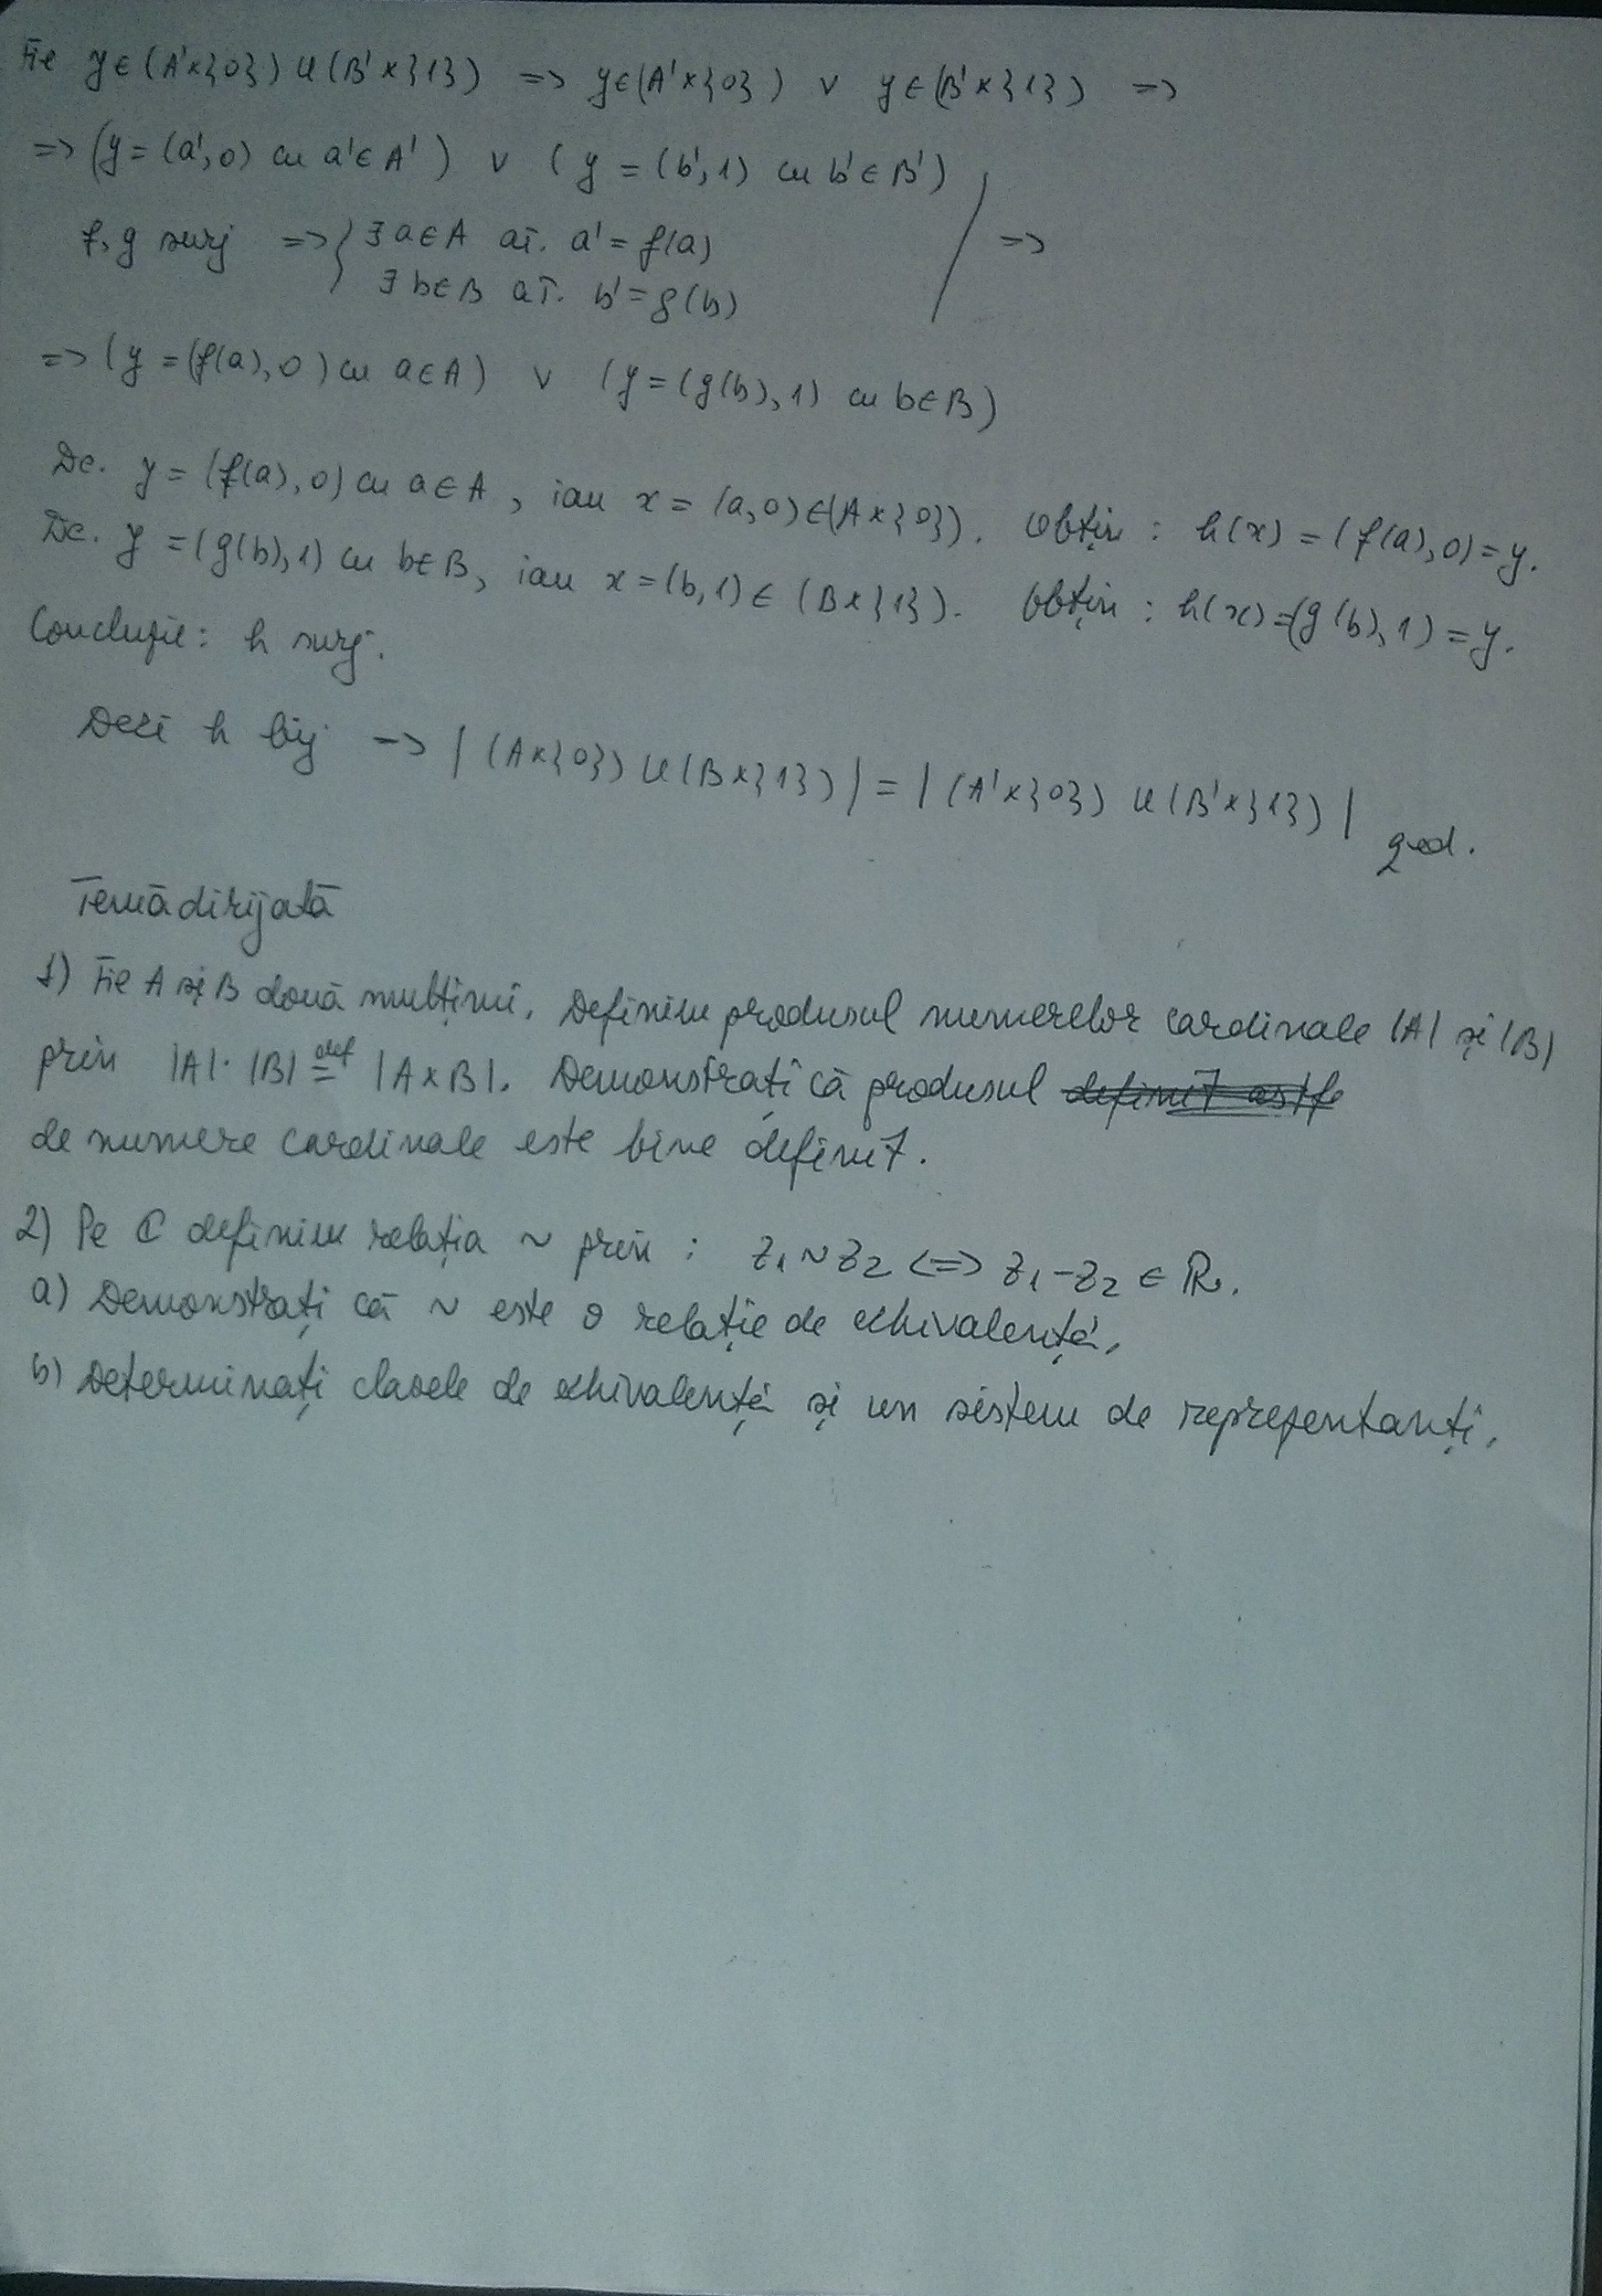 Fie y∈(A'×{0})∪(B'×{1}) => y∈(A'×{0}) ∨ y∈(B'×{1}) =>
=> (y=(a',0) cu a'∈A') ∨ (y=(b',1) cu b'∈B')
f,g surj => { ∃a∈A aî. a'=f(a) | =>
∃b∈B aî. b'=g(b)
=> (y=(f(a),0) cu a∈A) ∨ (y=(g(b),1) cu b∈B)
Dc. y=(f(a),0) cu a∈A, iau x=(a,0)∈(A×{0}). Obțin: h(x)=(f(a),0)=y.
Dc. y=(g(b),1) cu b∈B, iau x=(b,1)∈(B×{1}). Obțin: h(x)=(g(b),1)=y.
Concluzie: h surj.
Deci h bij => |(A×{0})∪(B×{1})|=|(A'×{0})∪(B'×{1})| qed.
Temă dirijată
1) Fie A și B două mulțimi. Definim produsul numerelor cardinale |A| și |B|
prin |A|·|B| def= |A×B|. Demonstrați că produsul definit astfe
de numere cardinale este bine definit.
2) Pe ℂ definim relația ~ prin: z₁~z₂ <=> z₁-z₂∈ℝ.
a) Demonstrați că ~ este o relație de echivalență.
b) Determinați clasele de echivalență și un sistem de reprezentanți.